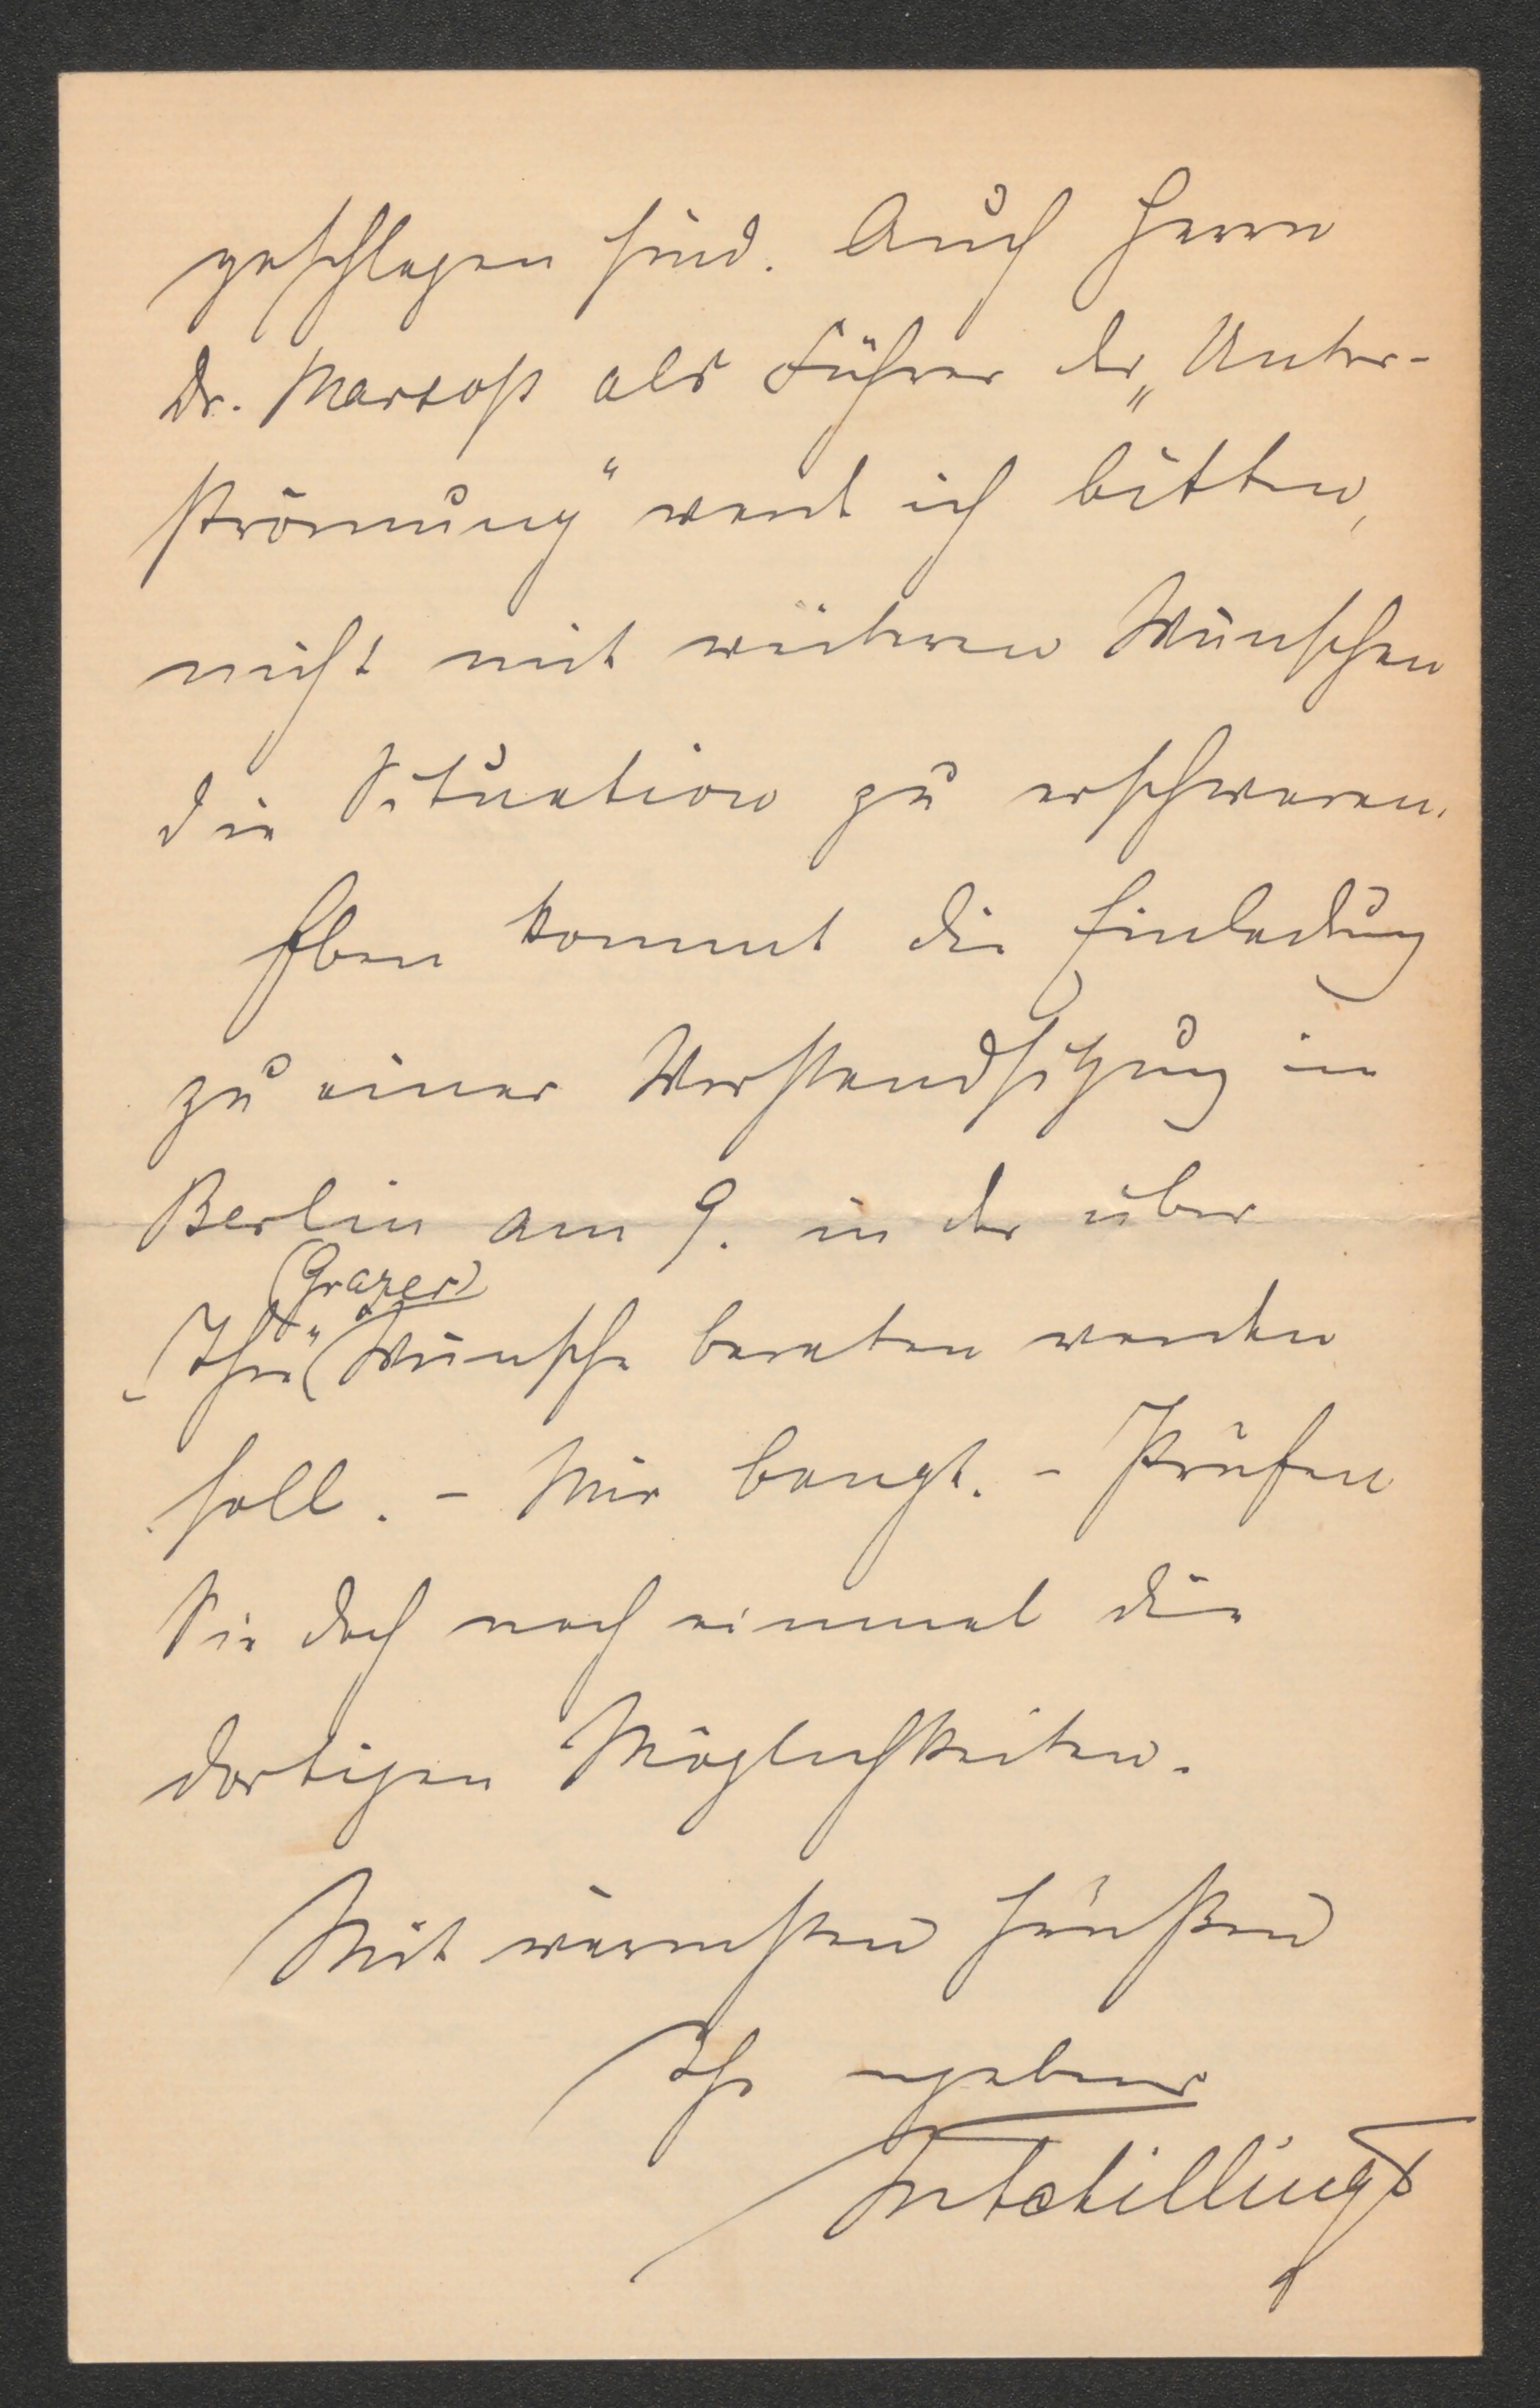 geschlagen sind. Auch Herrn
Dr. Marsop als Führer der „Unter-
strömung“ werde ich bitten,
nicht mit weiteren Wünschen
die Situation zu erschweren.
Eben kommt die Einladung
zu einer Vorstandsitzung in
Berlin am 9. in der über
(Grazer)
„Ihre“ Wünsche beraten werden
soll. – Mir bangt. – Prüfen
Sie doch noch einmal die
dortigen Möglichkeiten.
Mit wärmsten Grüßen
Ihr ergebener
MSchillings